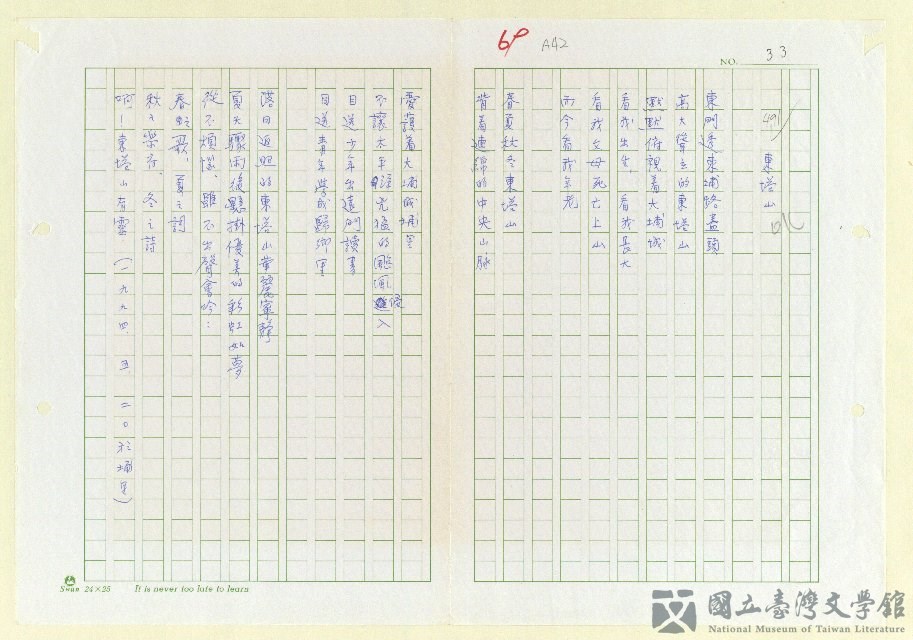 69 A42
NO. 33
49
東塔山
東門邊東埔路盡頭
高大聳立的東塔山
默默俯視着大埔城
看我出生,看我長大
看我父母死亡上山
而今看我年老
春夏秋冬東塔山
背着連綿的中央山脈
愛護着大埔城埔里
不讓太平洋兇狠的颱風侵入
目送少年出遠門讀書
目迎青年學成歸鄉里
落日返照的東塔山華麗寧靜
夏天驟雨後懸掛優美的彩虹如夢
從不煩惱、雖不出聲會吟:
春之歌,夏之詞
秋之樂府、冬之詩
啊!東塔山有靈(一九九四、五 二〇於埔里)
Swan 24×25 It is never too late to learn
國立臺灣文學館
National Museum of Taiwan Literature